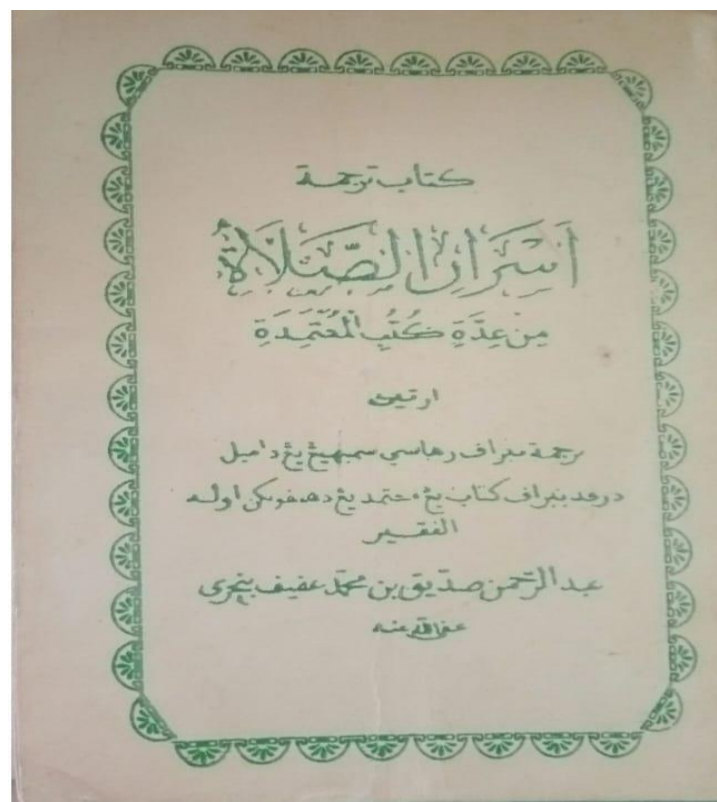 كتاب ترجمة
اَسْرَارِ الصَّلَاةِ
مِنْ عِدَّةِ كُتُبِ الْمُعْتَمَدَةِ
ارتيڽ
ترجمة ببراف رهاسي سمبهيڠ يڠ دامبل
درفد ببراف كتاب يڠ معتمد يڠ دهمفونكن اوله
الفقير
عبد الرّحمن صدّيق بن محمّد عفيف بنجرى
عفى الله عنه